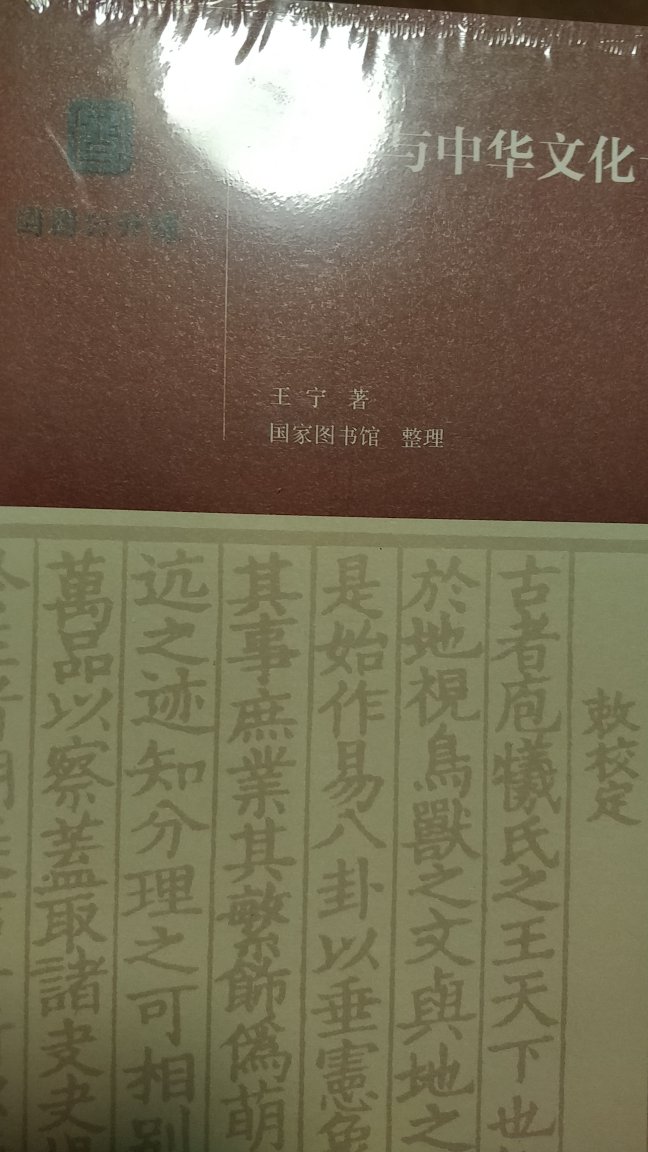 与中华文化
国图公开课
王宁 著
国家图书馆 整理
敕校定
古者庖犧氏之王天下也
於地視鳥獸之文與地之
是始作易八卦以垂憲象
其事庶業其繁飾偽萌
迒之迹知分理之可相别
萬品以察蓋取諸夬夬